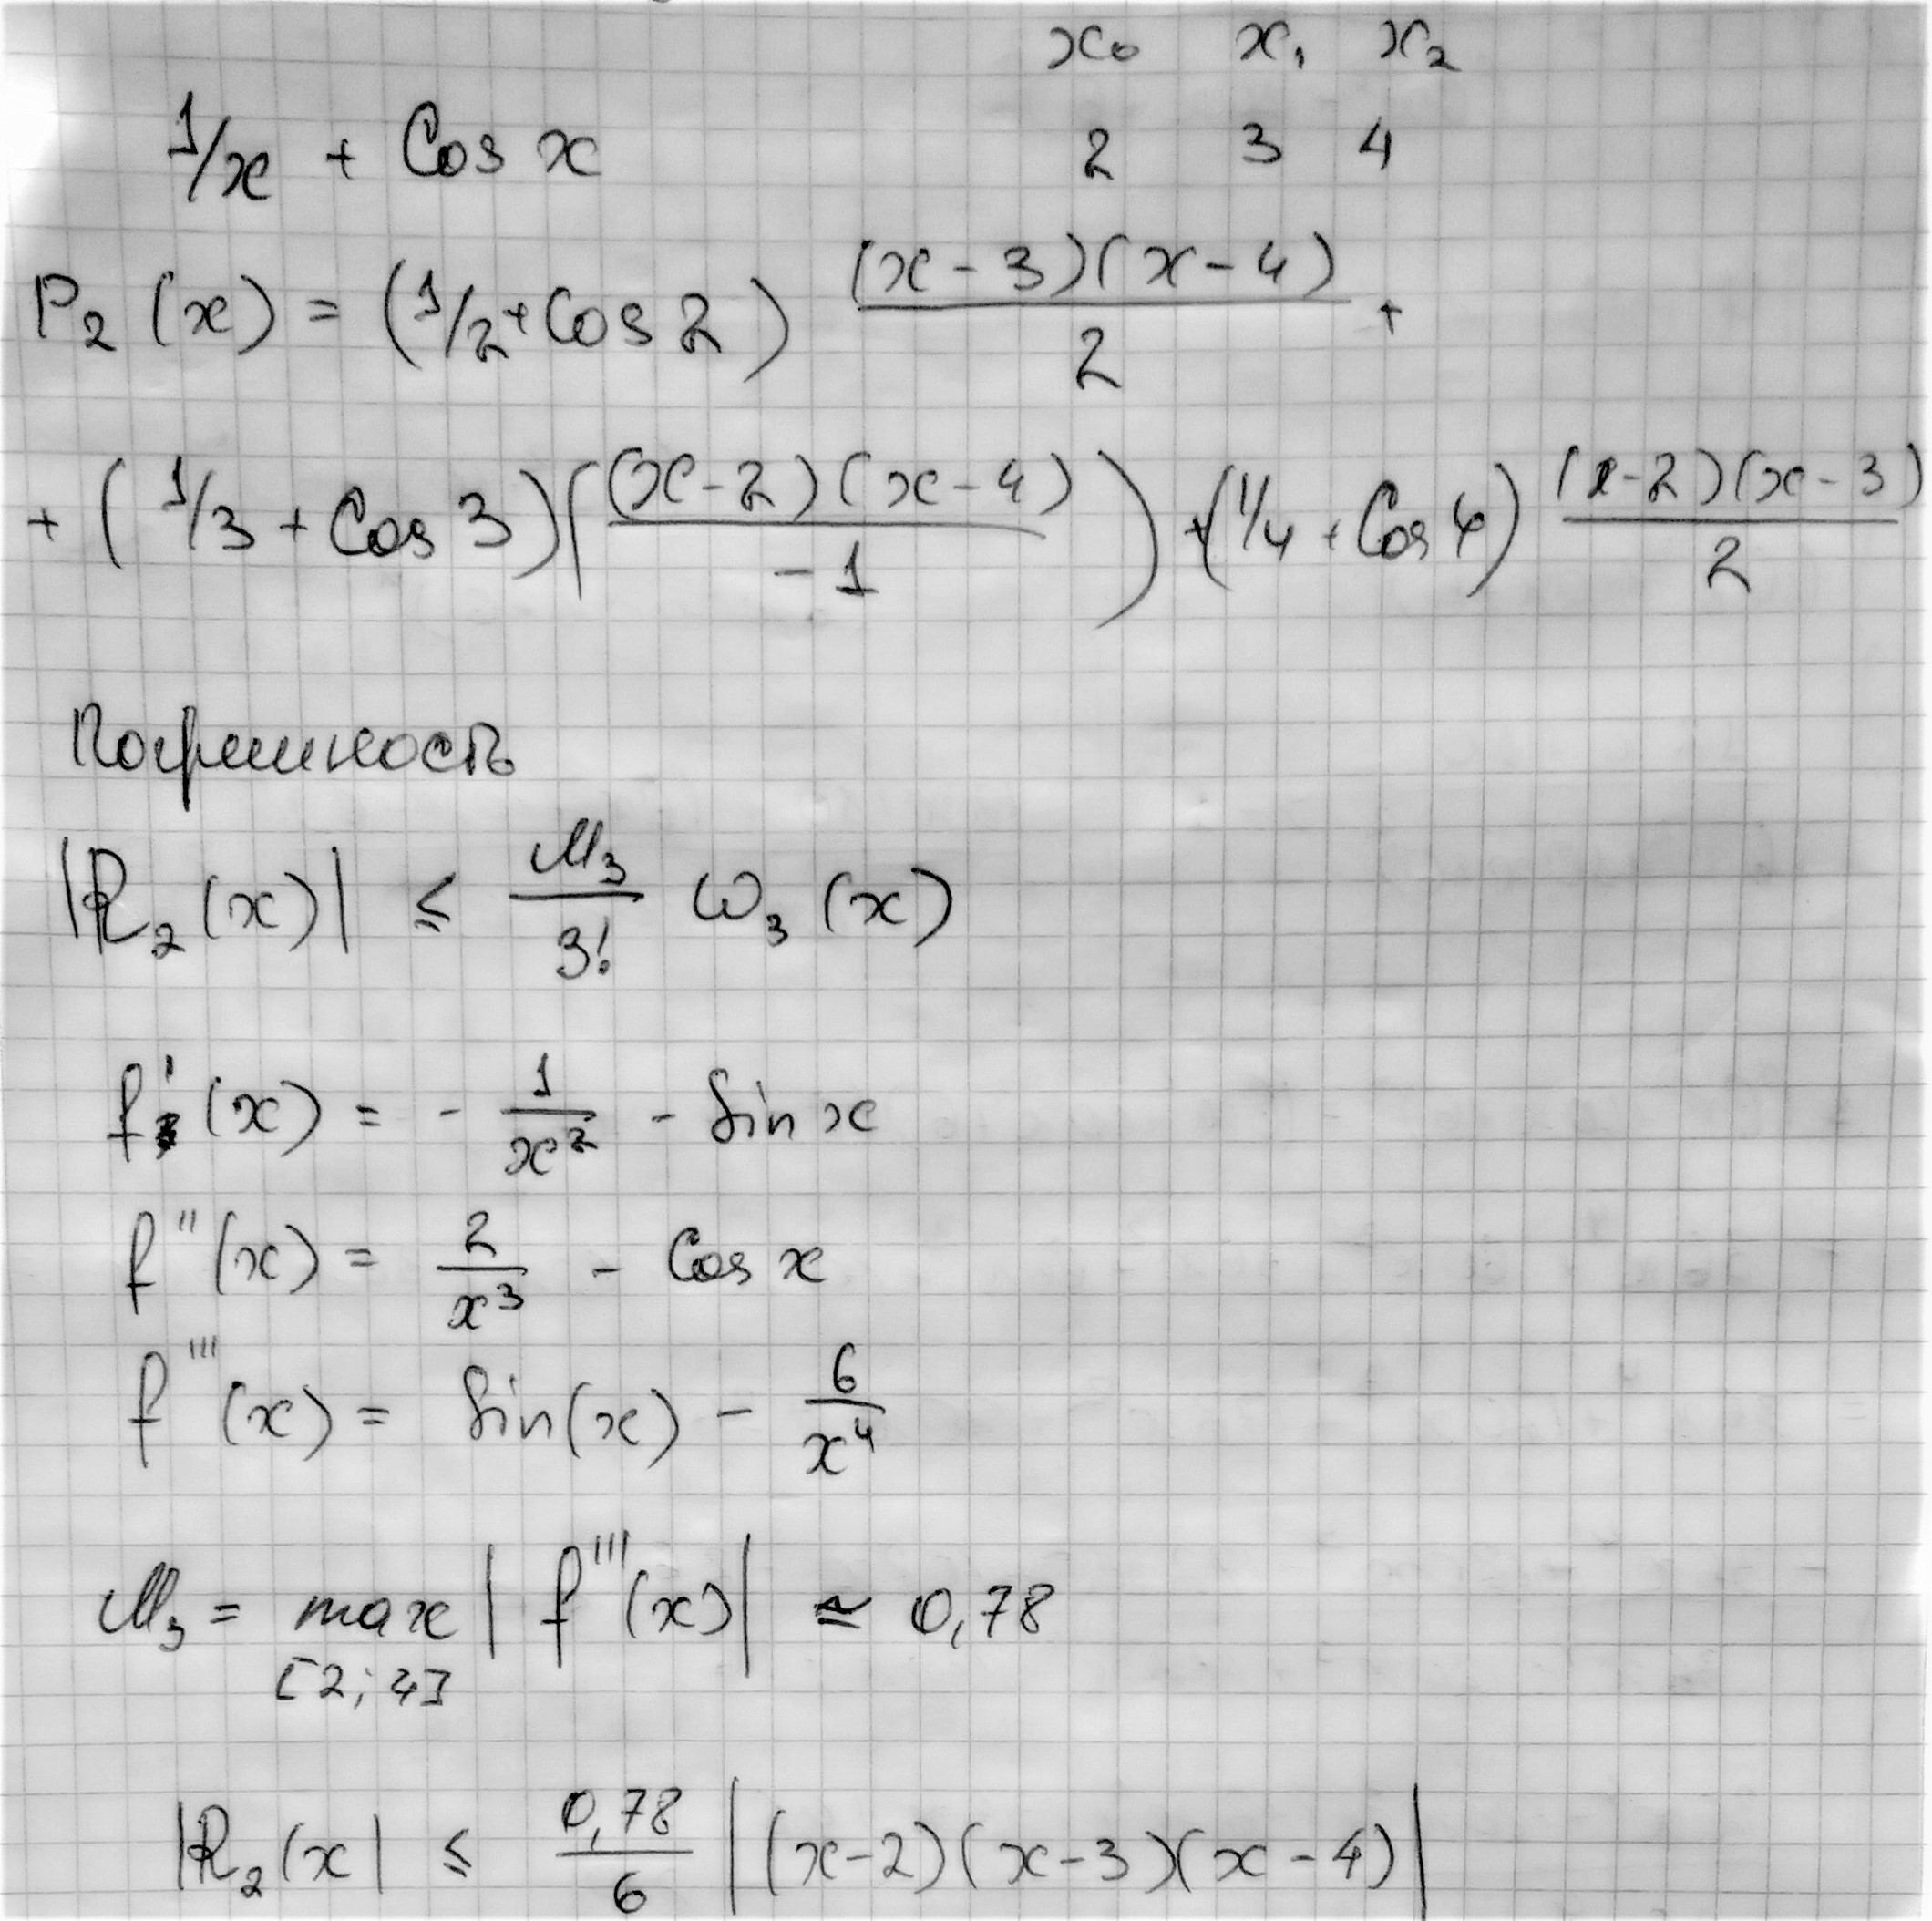 x₀ x₁ x₂
1/x + Cos x 2 3 4
P₂ (x) = (1/2 + Cos 2) (x - 3)(x - 4) / 2 +
+ (1/3 + Cos 3) ((x - 2)(x - 4) / -1) + (1/4 + Cos 4) (x - 2)(x - 3) / 2
Погрешность
|R₂ (x)| ≤ M₃ / 3! ω₃ (x)
f' (x) = - 1 / x² - Sin x
f'' (x) = 2 / x³ - Cos x
f''' (x) = Sin(x) - 6 / x⁴
M₃ = max | f'''(x) | ≃ 0,78
[2; 4]
|R₂ (x| ≤ 0,78 / 6 |(x-2)(x-3)(x-4)|